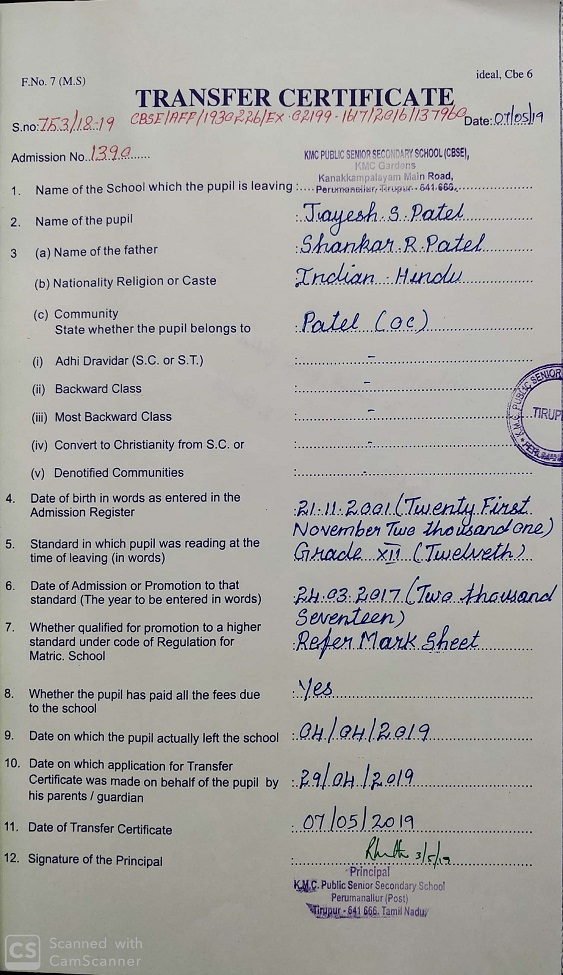 F.No. 7 (M.S)
ideal, Cbe 6
TRANSFER CERTIFICATE
S.no: 753/18-19 CBSE/AFF/1930226/EX-02199-1617/2016/137960 Date: 07/05/19
Admission No. 1390
KMC PUBLIC SENIOR SECONDARY SCHOOL (CBSE),
KMC Gardens
Kanakkampalayam Main Road,
1. Name of the School which the pupil is leaving : Perumanallur, Tirupur - 641 666.
2. Name of the pupil : Jayesh.S.Patel
3 (a) Name of the father : Shankar.R.Patel
(b) Nationality Religion or Caste : Indian - Hindu
(c) Community
State whether the pupil belongs to : Patel (OC)
(i) Adhi Dravidar (S.C. or S.T.) : -
(ii) Backward Class : -
(iii) Most Backward Class : -
(iv) Convert to Christianity from S.C. or : -
(v) Denotified Communities : -
K.M.C. PUBLIC SENIOR
TIRUP
4. Date of birth in words as entered in the
Admission Register : 21.11.2001 (Twenty First
November Two thousand one)
5. Standard in which pupil was reading at the
time of leaving (in words) Grade XII (Twelveth)
6. Date of Admission or Promotion to that
standard (The year to be entered in words) : 24.03.2017 (Two thousand
Seventeen)
7. Whether qualified for promotion to a higher
standard under code of Regulation for : Refer Mark Sheet
Matric. School
8. Whether the pupil has paid all the fees due : Yes
to the school
9. Date on which the pupil actually left the school : 04/04/2019
10. Date on which application for Transfer
Certificate was made on behalf of the pupil by : 29/04/2019
his parents / guardian
11. Date of Transfer Certificate : 07/05/2019
12. Signature of the Principal : 3/5/19
Principal
K.M.C. Public Senior Secondary School
Perumanallur (Post)
Tirupur - 641 666. Tamil Nadu.
CS Scanned with
CamScanner